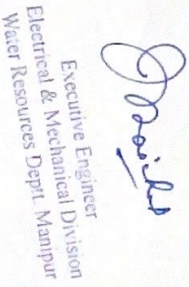 Executive Engineer
Electrical & Mechanical Division
Water Resources Deptt. Manipur